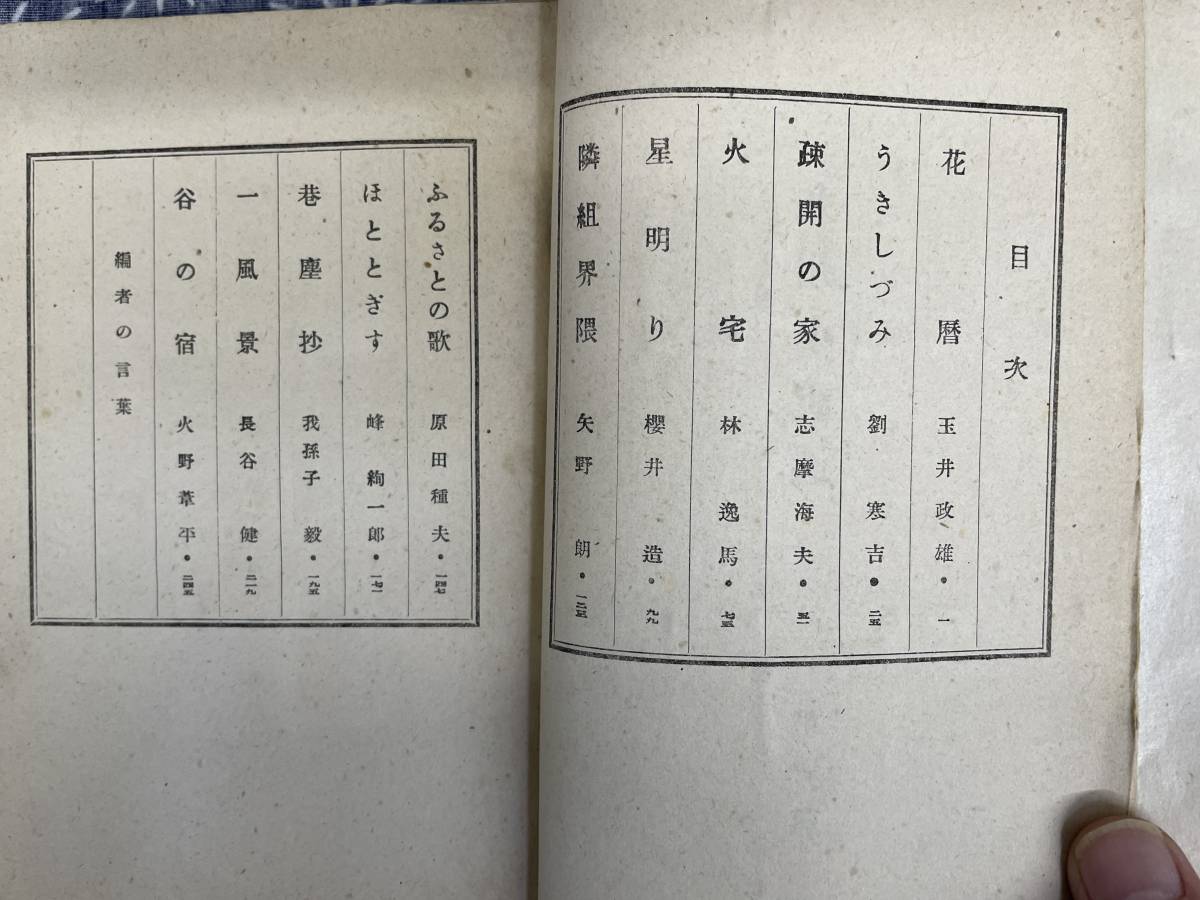 目次
花暦 玉井政雄・一
うきしづみ 劉寒吉・二五
疎開の家 志摩海夫・五一
火宅 林逸馬・七五
星明り 櫻井造・九九
隣組界隈 矢野朗・一二三
ふるさとの歌 原田種夫・一四七
ほととぎす 峰絢一郎・一七一
巷塵抄 我孫子毅・一九五
一風景 長谷健・二一九
谷の宿 火野葦平・二四五
編者の言葉